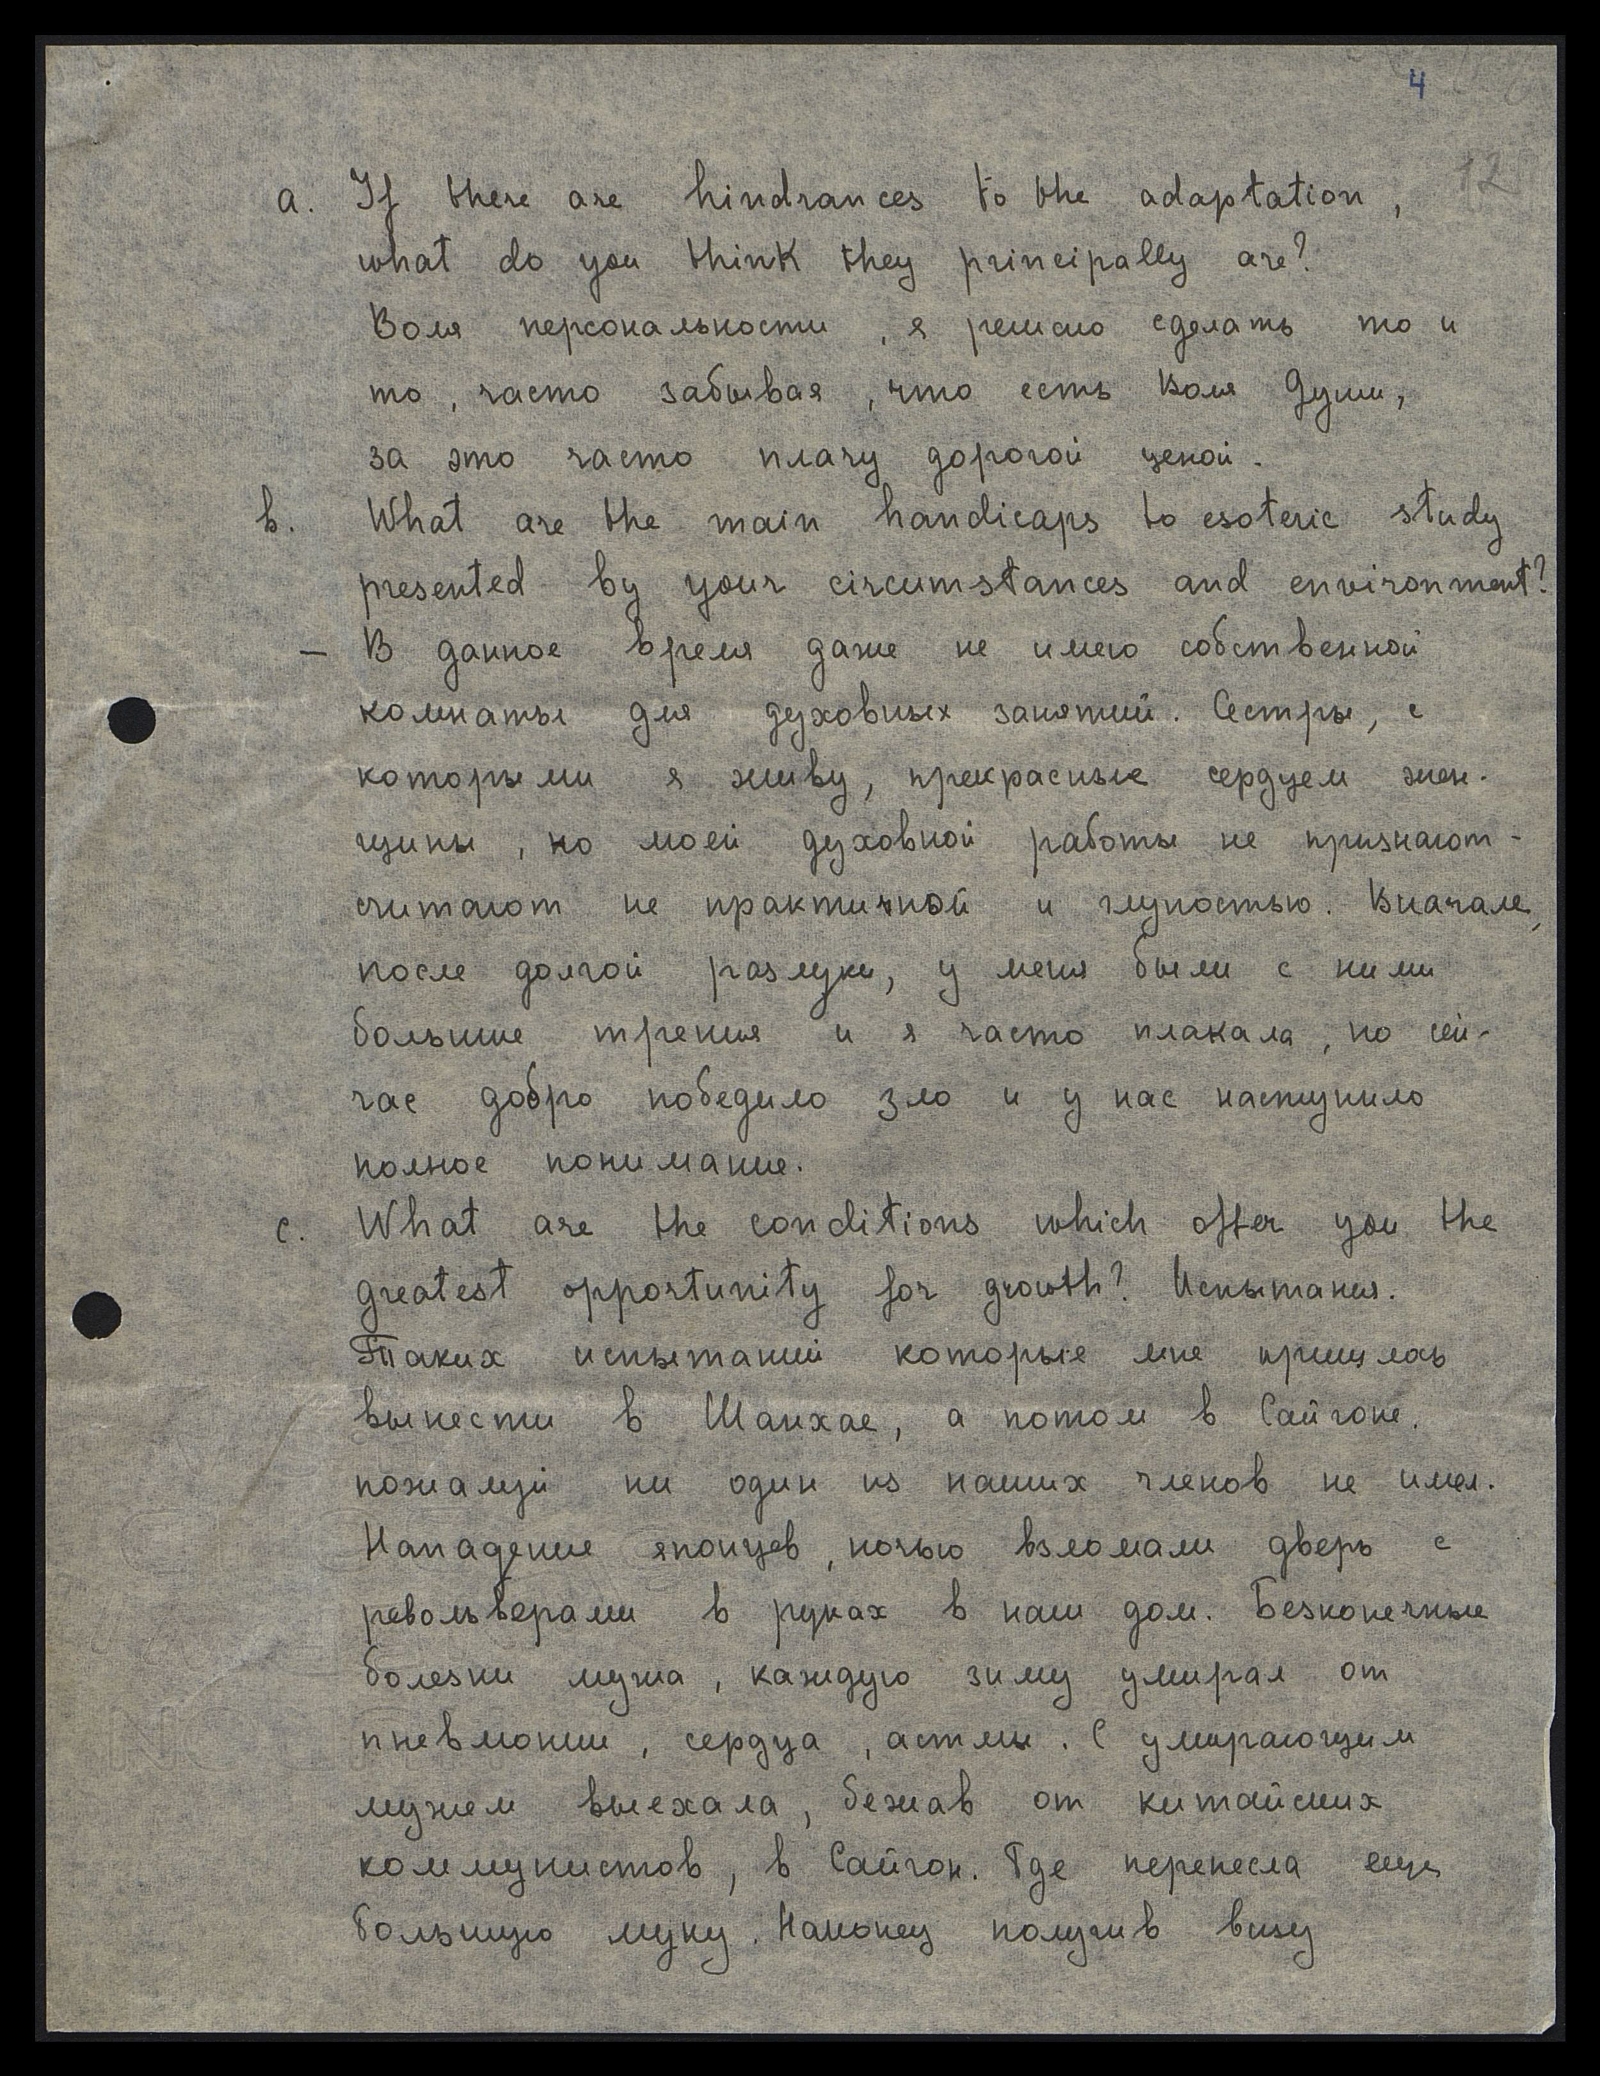 4
12
a. If there are hindrances to the adaptation,
what do you think they principally are?
Воля персональности, я решаю сделать то и
то, часто забывая, что есть Воля Души,
за это часто плачу дорогой ценой.
b. What are the main handicaps to esoteric study
presented by your circumstances and environment?
— В данное время даже не имею собственной
комнаты для духовных занятий. Сестры, с
которыми я живу, прекрасные сердцем жен-
щины, но моей духовной работы не признают -
считают не практичной и глупостью. Вначале,
после долгой разлуки, у меня были с ними
большие трения и я часто плакала, но сей-
час добро победило зло и у нас наступило
полное понимание.
c. What are the conditions which offer you the
greatest opportunity for growth? Испытания.
Таких испытаний которые мне пришлось
вынести в Шанхае, а потом в Сайгоне.
пожалуй ни один из наших членов не имел.
Нападение японцев, ночью взломали дверь с
револьверами в руках в наш дом. Безконечные
болезни мужа, каждую зиму умирал от
пневмонии, сердца, астмы. С умирающим
мужем выехала, бежав от китайских
коммунистов, в Сайгон. Где перенесла еще
большую муку. Наконец получив визу